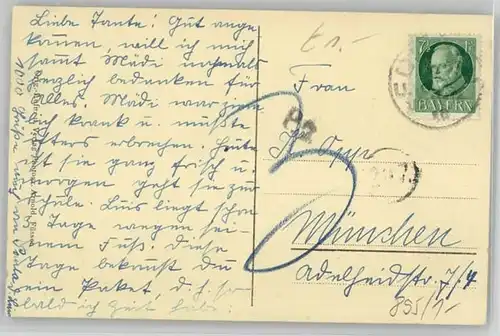 Liebe Tante! Gut ange
kommen, will ich mich
samt Mädi nochmals
herzlich bedanken für
alles. Mädi war ziem
lich krank u. mußte
öfters erbrechen. Heute
ist sie ganz frisch u.
morgen geht sie zur
Schule. Luis liegt schon
Tage wegen sei-
nem Fuß. Diese
Tage bekommst Du
ein Paket, d. h. so
bald ich Zeit habe.
1000 Grüße von
Frau
München
Adelheidstr.
7½
BAYERN
£ 1.-
895/1-